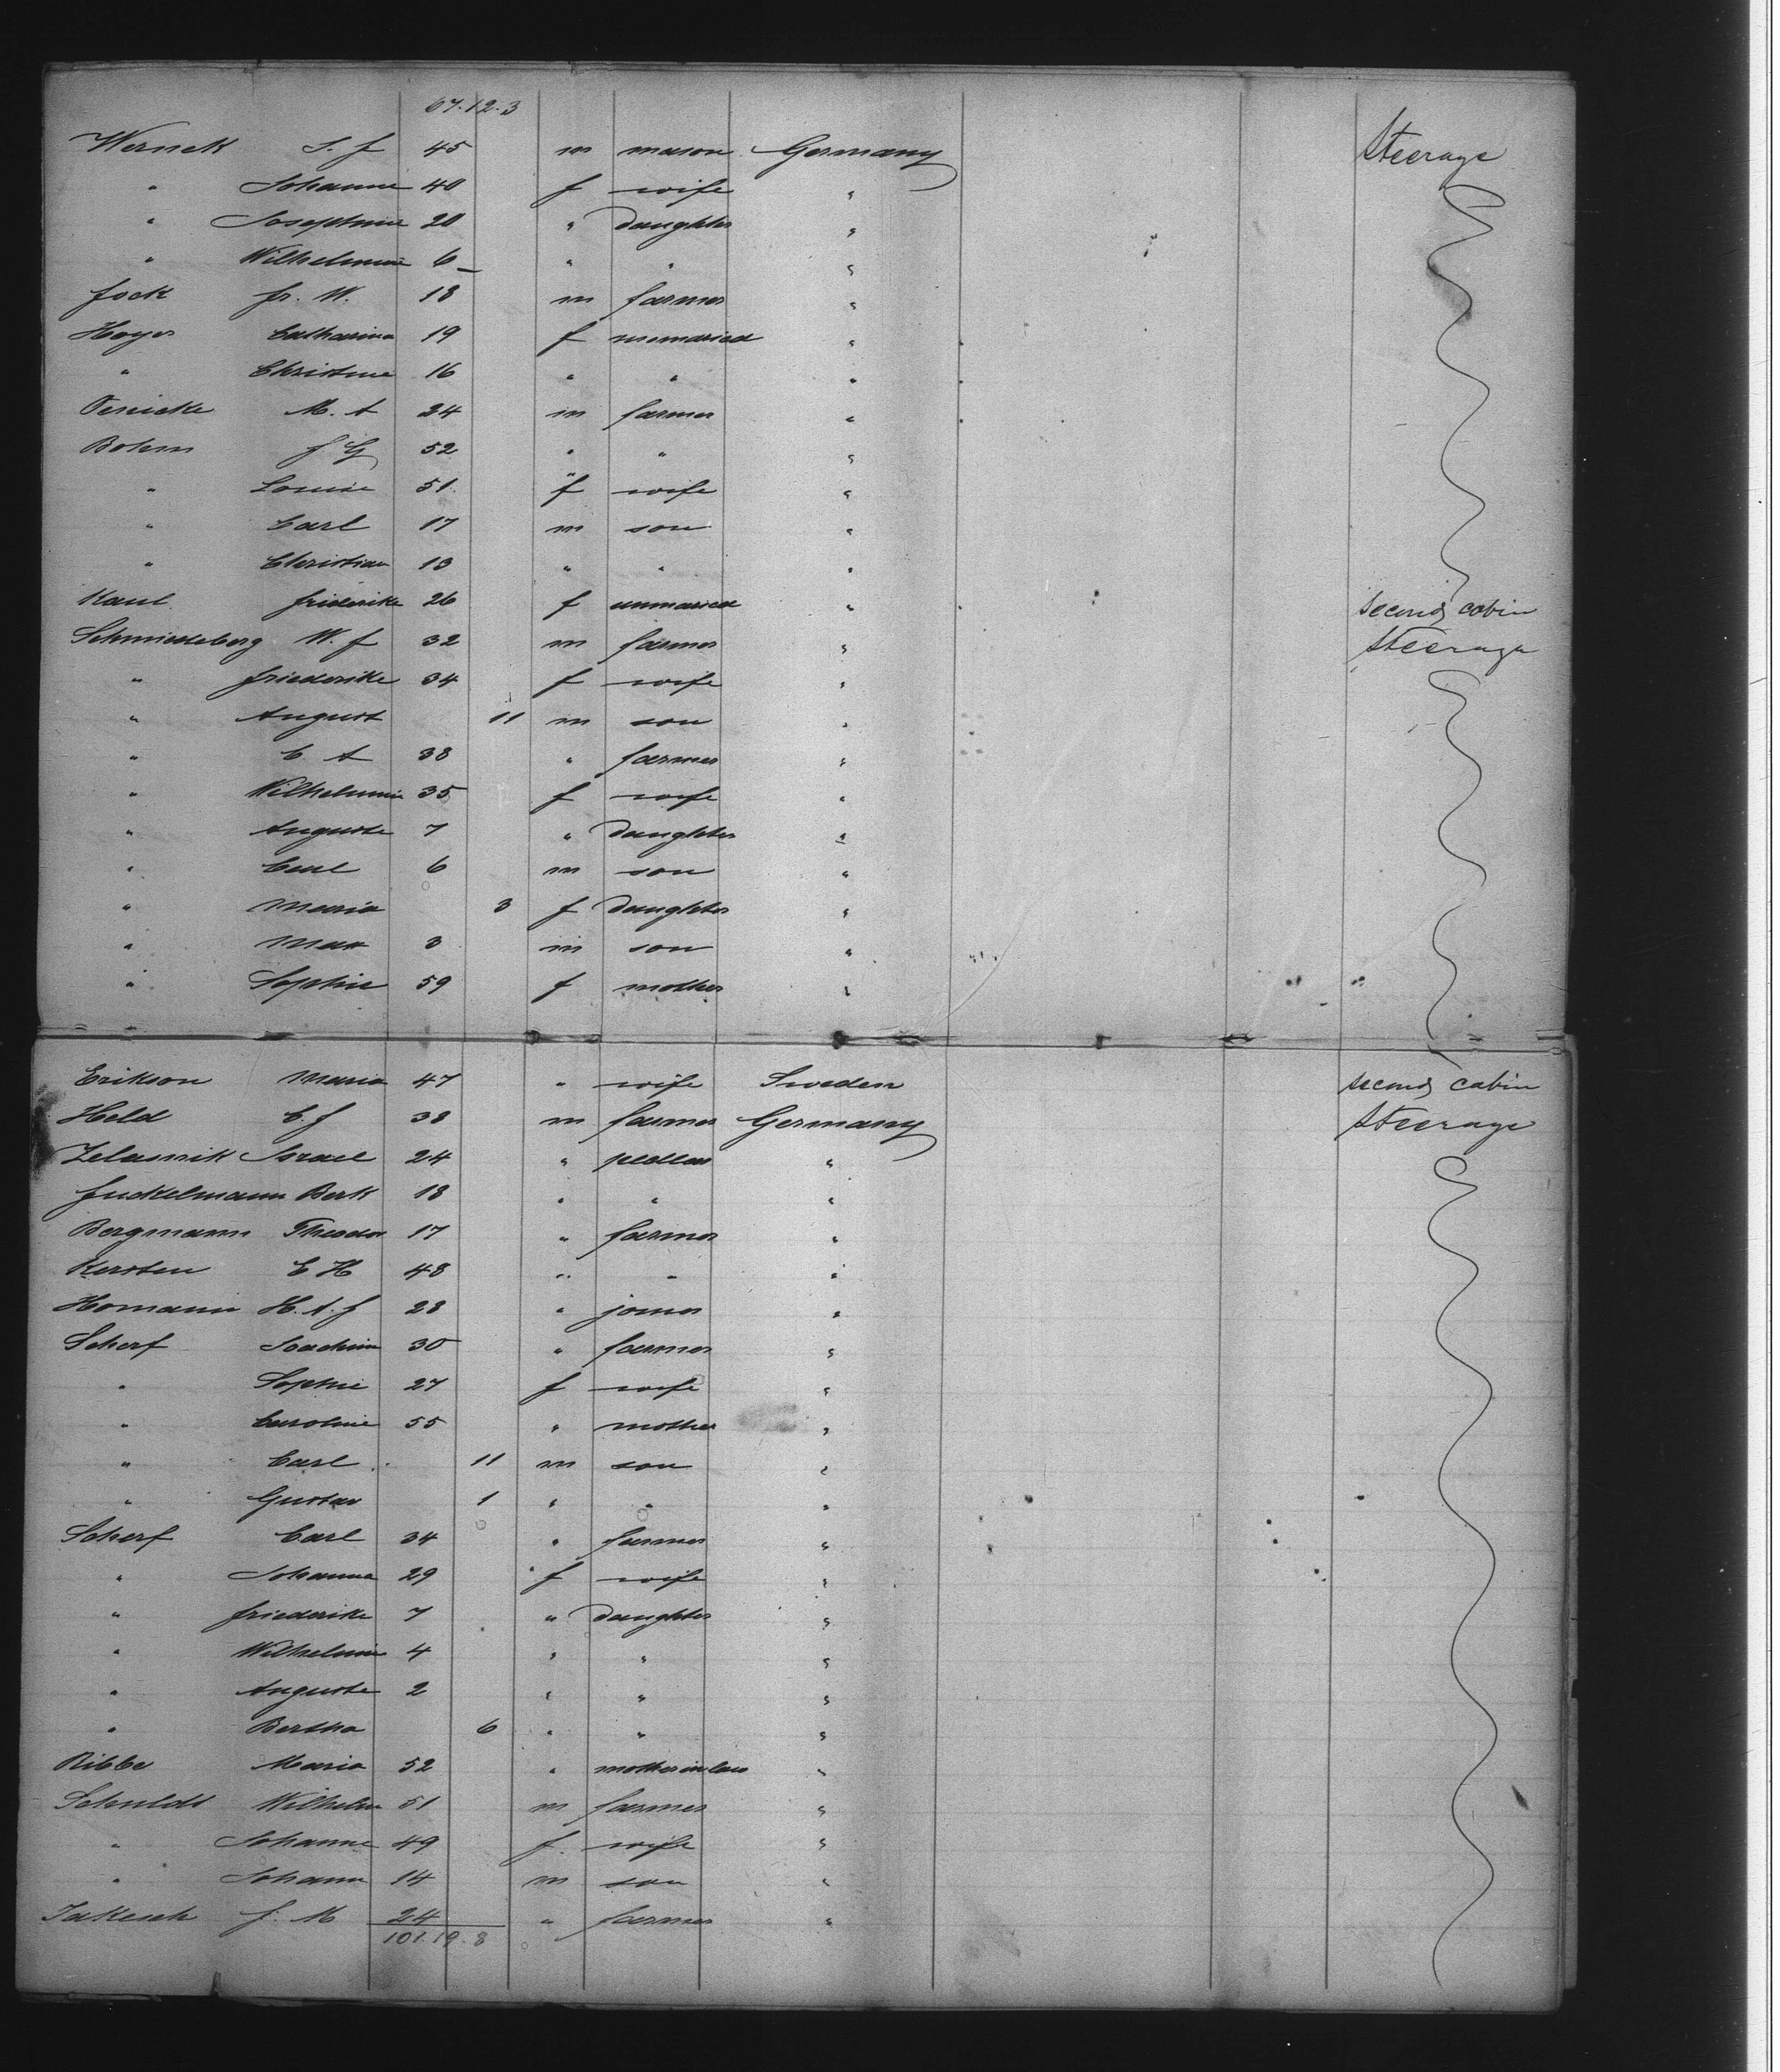 67.12.3
Werneck J. f 45 m mason Germany Steerage
" Johanne 40 f wife "
" Josephine 20 " daughter "
" Wilhelmine 6 " " "
fock fr. W. 18 m farmer "
Hoyer Catharina 19 f unmaried "
" Christine 16 " " "
M. A 24 m farmer "
Bohm f G 52 " " "
" Louise 51 f wife "
" Carl 17 m son "
" Christian 13 " " "
Kaul friderike 26 f unmaried " second cabin
Schmiedeberg W. f 32 m farmer " Steerage
" friederike 34 f wife "
" August 11 m son "
" C. A 38 " farmer "
" Wilhelmine 35 f wife "
" Auguste 7 " daughter "
" Carl 6 m son "
" Maria 3 f daughter "
" Max 3 m son "
" Sophie 59 f mother "
Erikson Maria 47 " wife Sweden second cabin
Held C. f 38 m farmer Germany Steerage
Zelasnik Israel 24 " pedlar "
fuckelmann Berk 18 " " "
Bergmann Theodor 17 " farmer "
Kersten C H 48 " " "
Homann H. A. f 28 " joiner "
Scherf Joachim 30 " farmer "
" Sophie 27 f wife "
" Caroline 55 " mother "
" Carl 11 m son "
" Gustav 1 " " "
Scherf Carl 34 " farmer "
" Johanna 29 f wife "
" friederike 7 " daughter "
" Wilhelmine 4 " " "
" Auguste 2 " " "
" Bertha 6 " " "
Ribbe Maria 52 " mother in law "
Schuldt Wilhelm 51 m farmer "
" Johanne 49 f wife "
" Johann 14 m son "
f. M 24 " farmer "
101.19.8